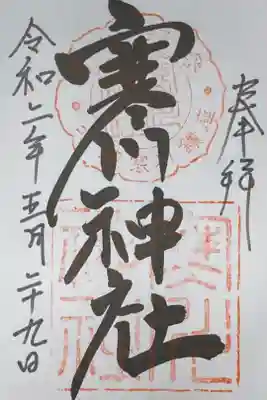 奉拝
寒川神社
令和二年五月二十九日
寒川神社